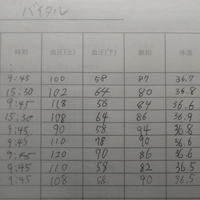 バイタル
時刻 血圧(上) 血圧(下) 脈拍 体温
9:45 100 58 87 36.7
15:30 102 64 80 36.8
9:45 118 56 84 36.6
15:30 108 64 86 36.9
9:45 90 58 94 36.8
9:45 110 78 90 36.6
9:45 120 70 86 36.6
9:45 110 58 82 36.5
9:45 108 56 90 36.5